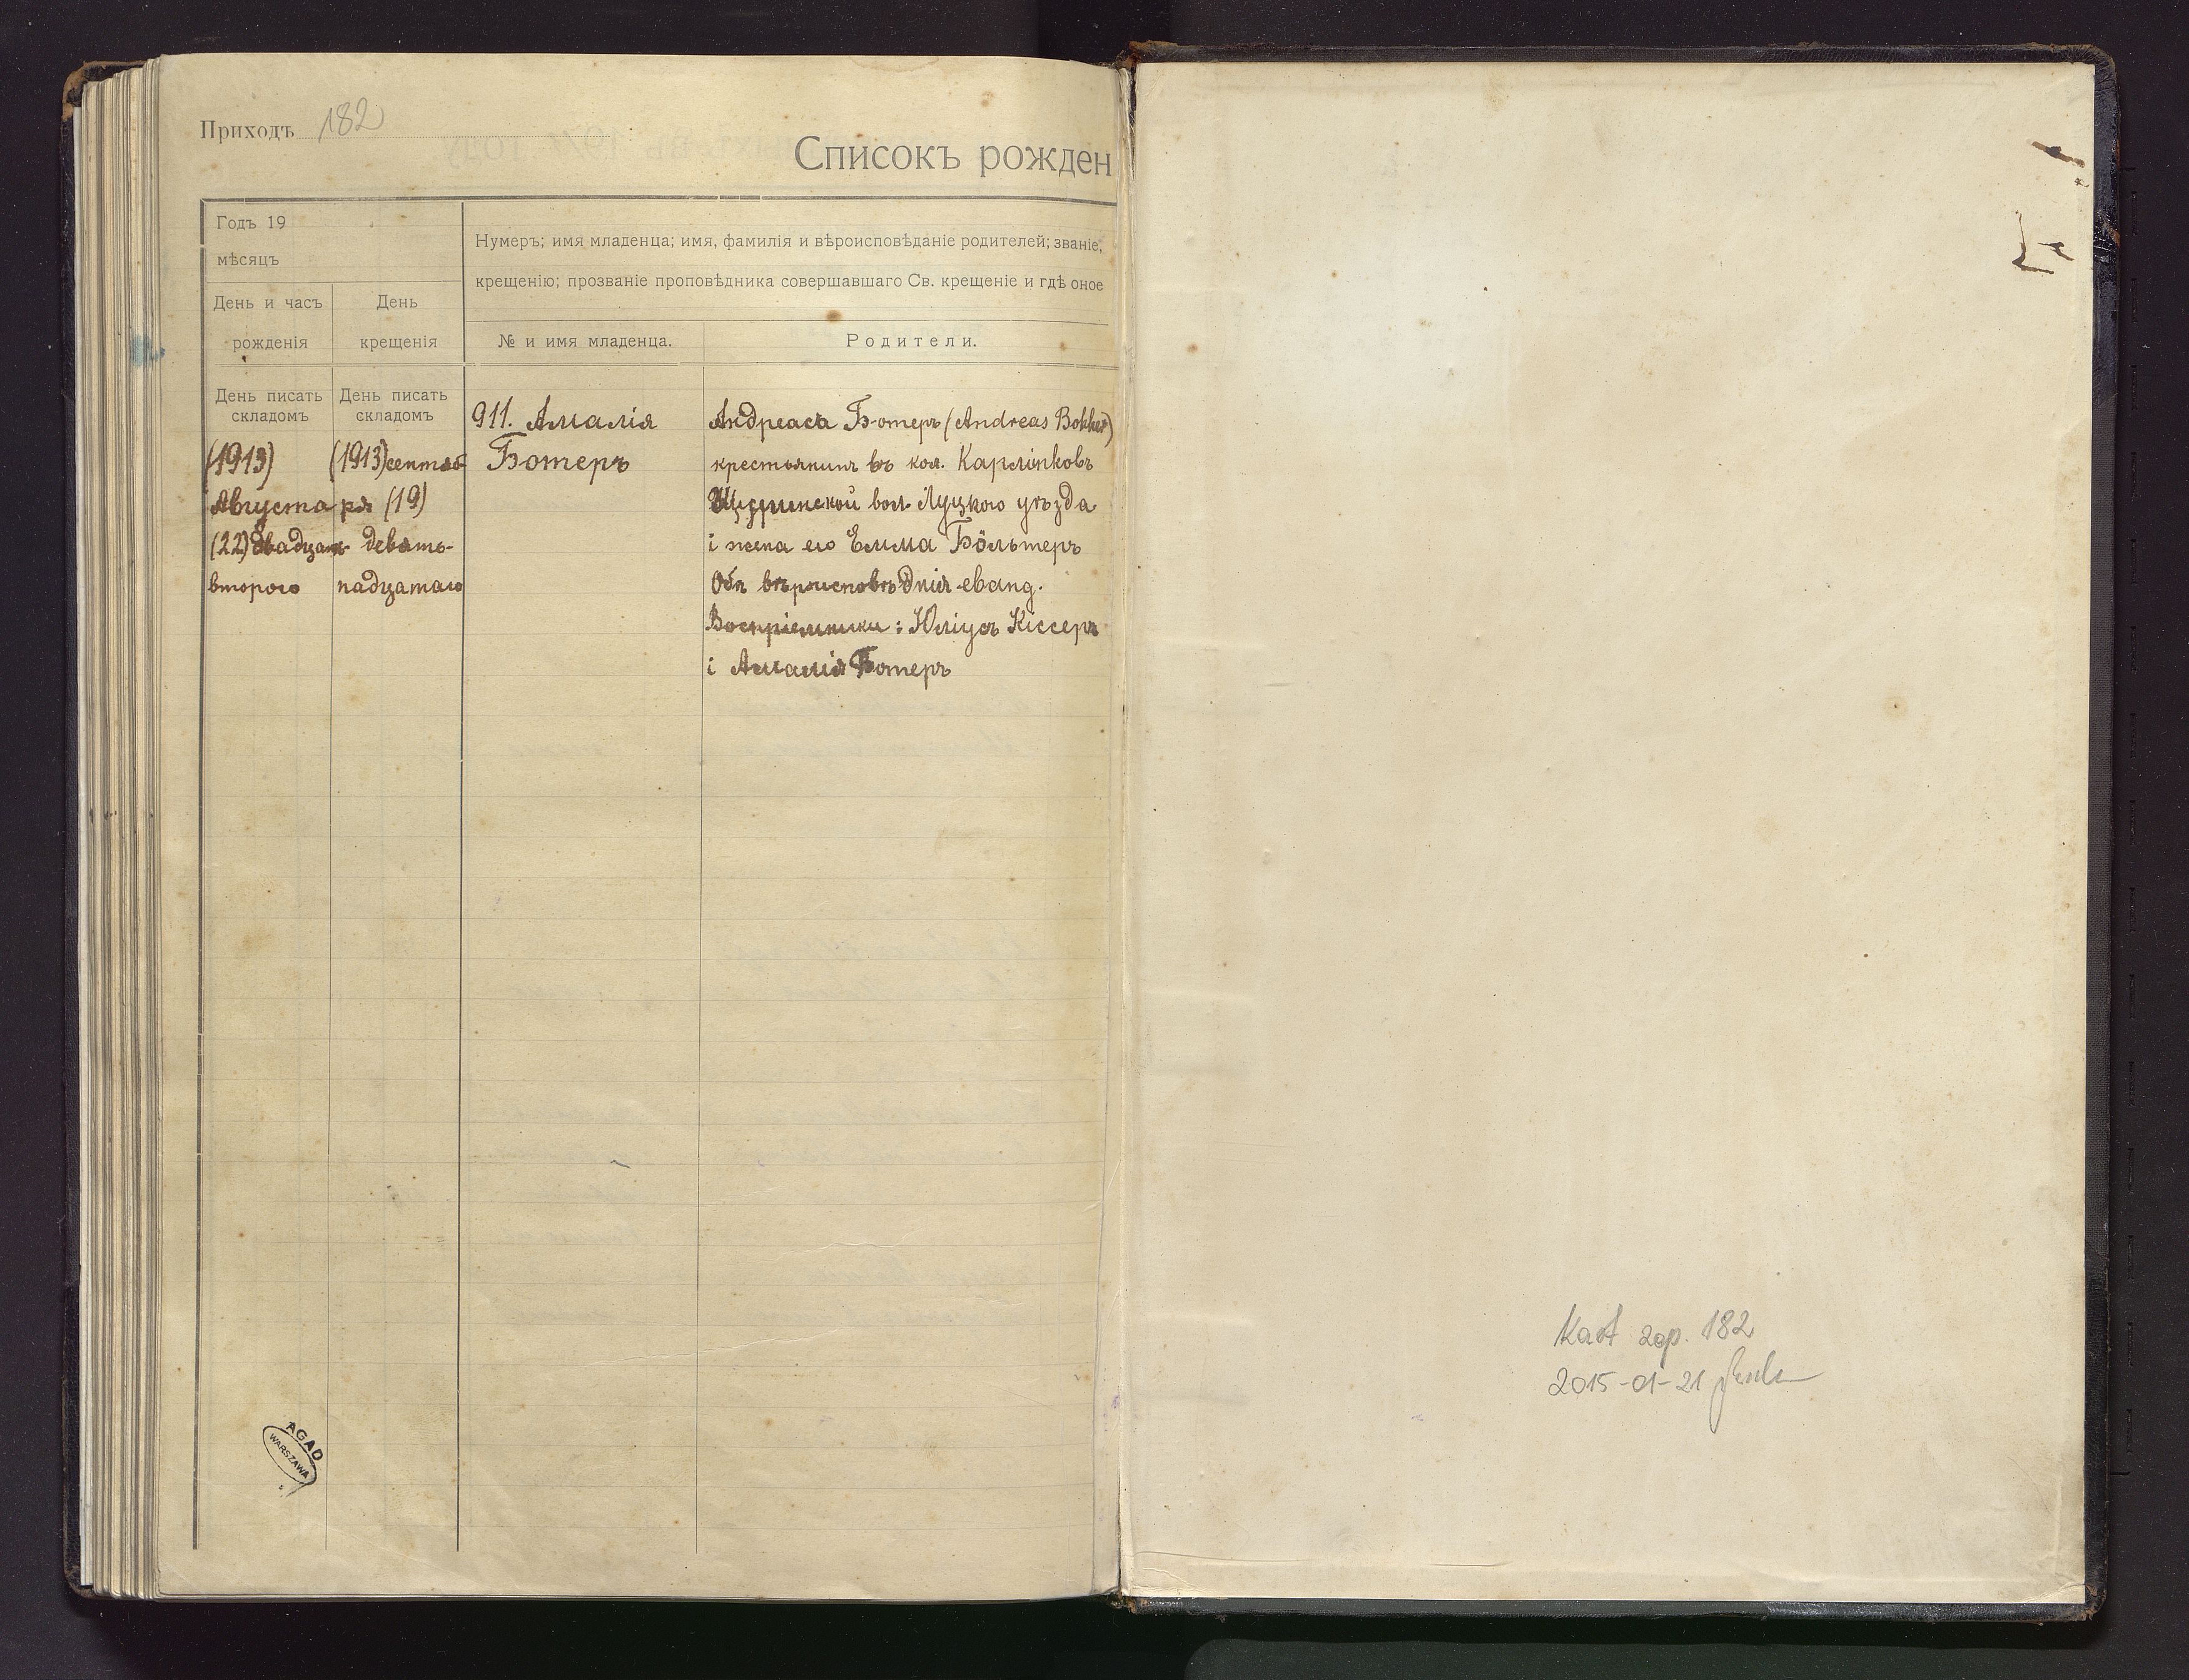 Приходъ 182
Списокъ рожден
Годъ 19
мѣсяцъ
Нумеръ; имя младенца; имя, фамилія и вѣроисповѣданіе родителей; званіе,
крещенію; прозваніе проповѣдника совершавшаго Св. крещеніе и гдѣ оное
День и часъ
рожденія
День
крещенія
№ и имя младенца.
Родители.
День писать
складомъ
День писать
складомъ
(1913)
Августа
(22) двадцать
второго
(1913) сентяб
ря (19)
девять-
надцатаго
911. Амалія
Ботеръ
Андреасъ Ботеръ (Andreas
крестьянинъ въ кол. Карлінковъ
вол. Луцкого уѣзда
і жена его Емма Бöльтеръ
Обѣ вѣроисповѣднія еванg.
Воспріемники: Юліусъ Кіссеръ
і Амалія Ботеръ
AGAD
WARSZAWA
182
2015-01-21